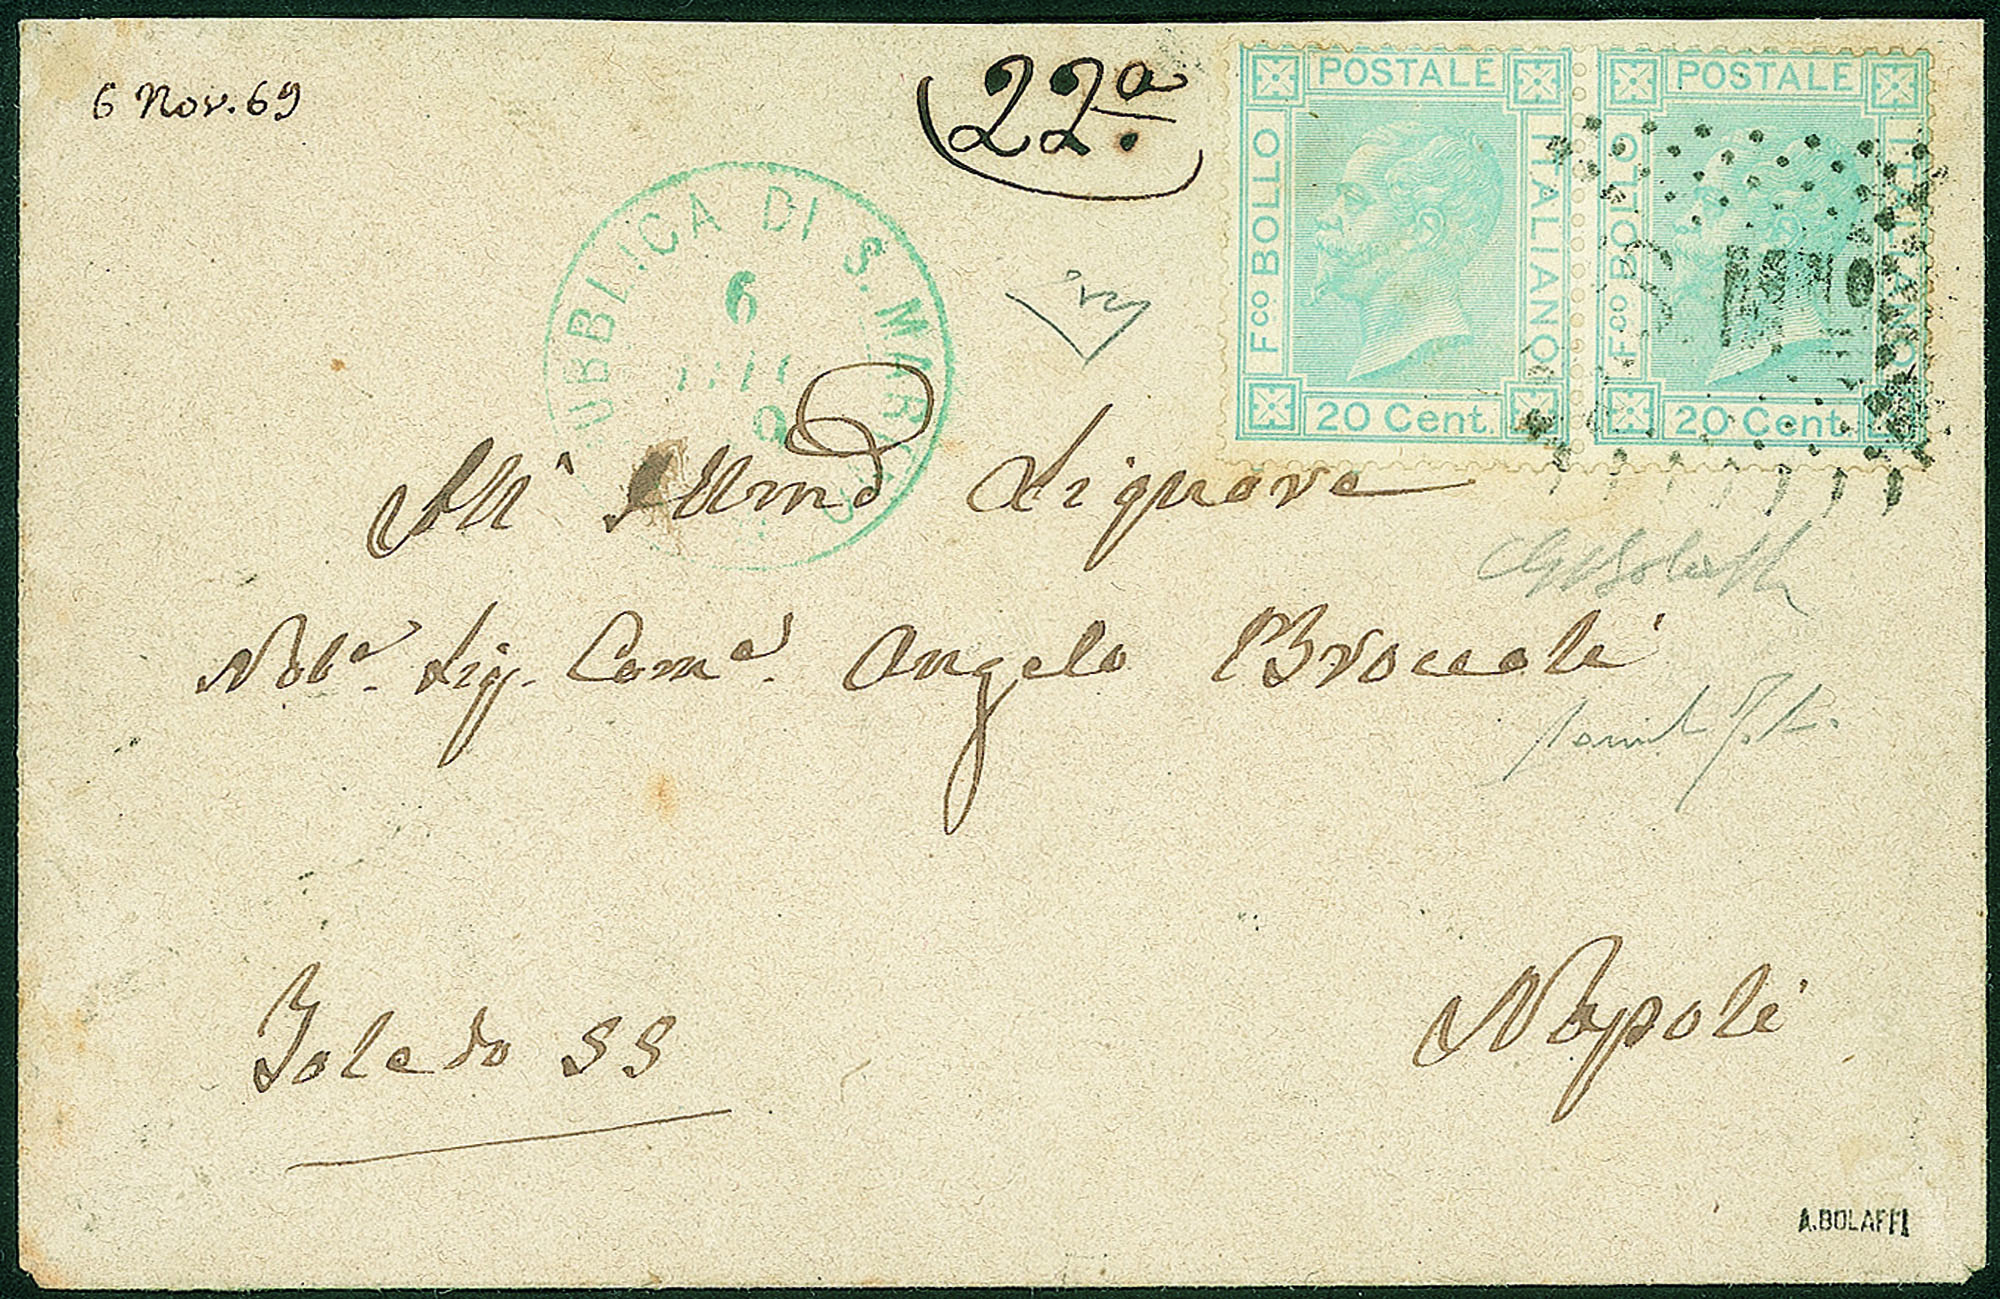 6 Nov. 69
22a.
POSTALE
Fco BOLLO
ITALIANO
20 Cent.
POSTALE
Fco BOLLO
ITALIANO
20 Cent.
UBBLICA DI S. MARINO
6
All' Illmo Signore
Nob.e Sig. Com.e Angelo Broccoli
Toledo 55
Napoli
A.BOLAFFI